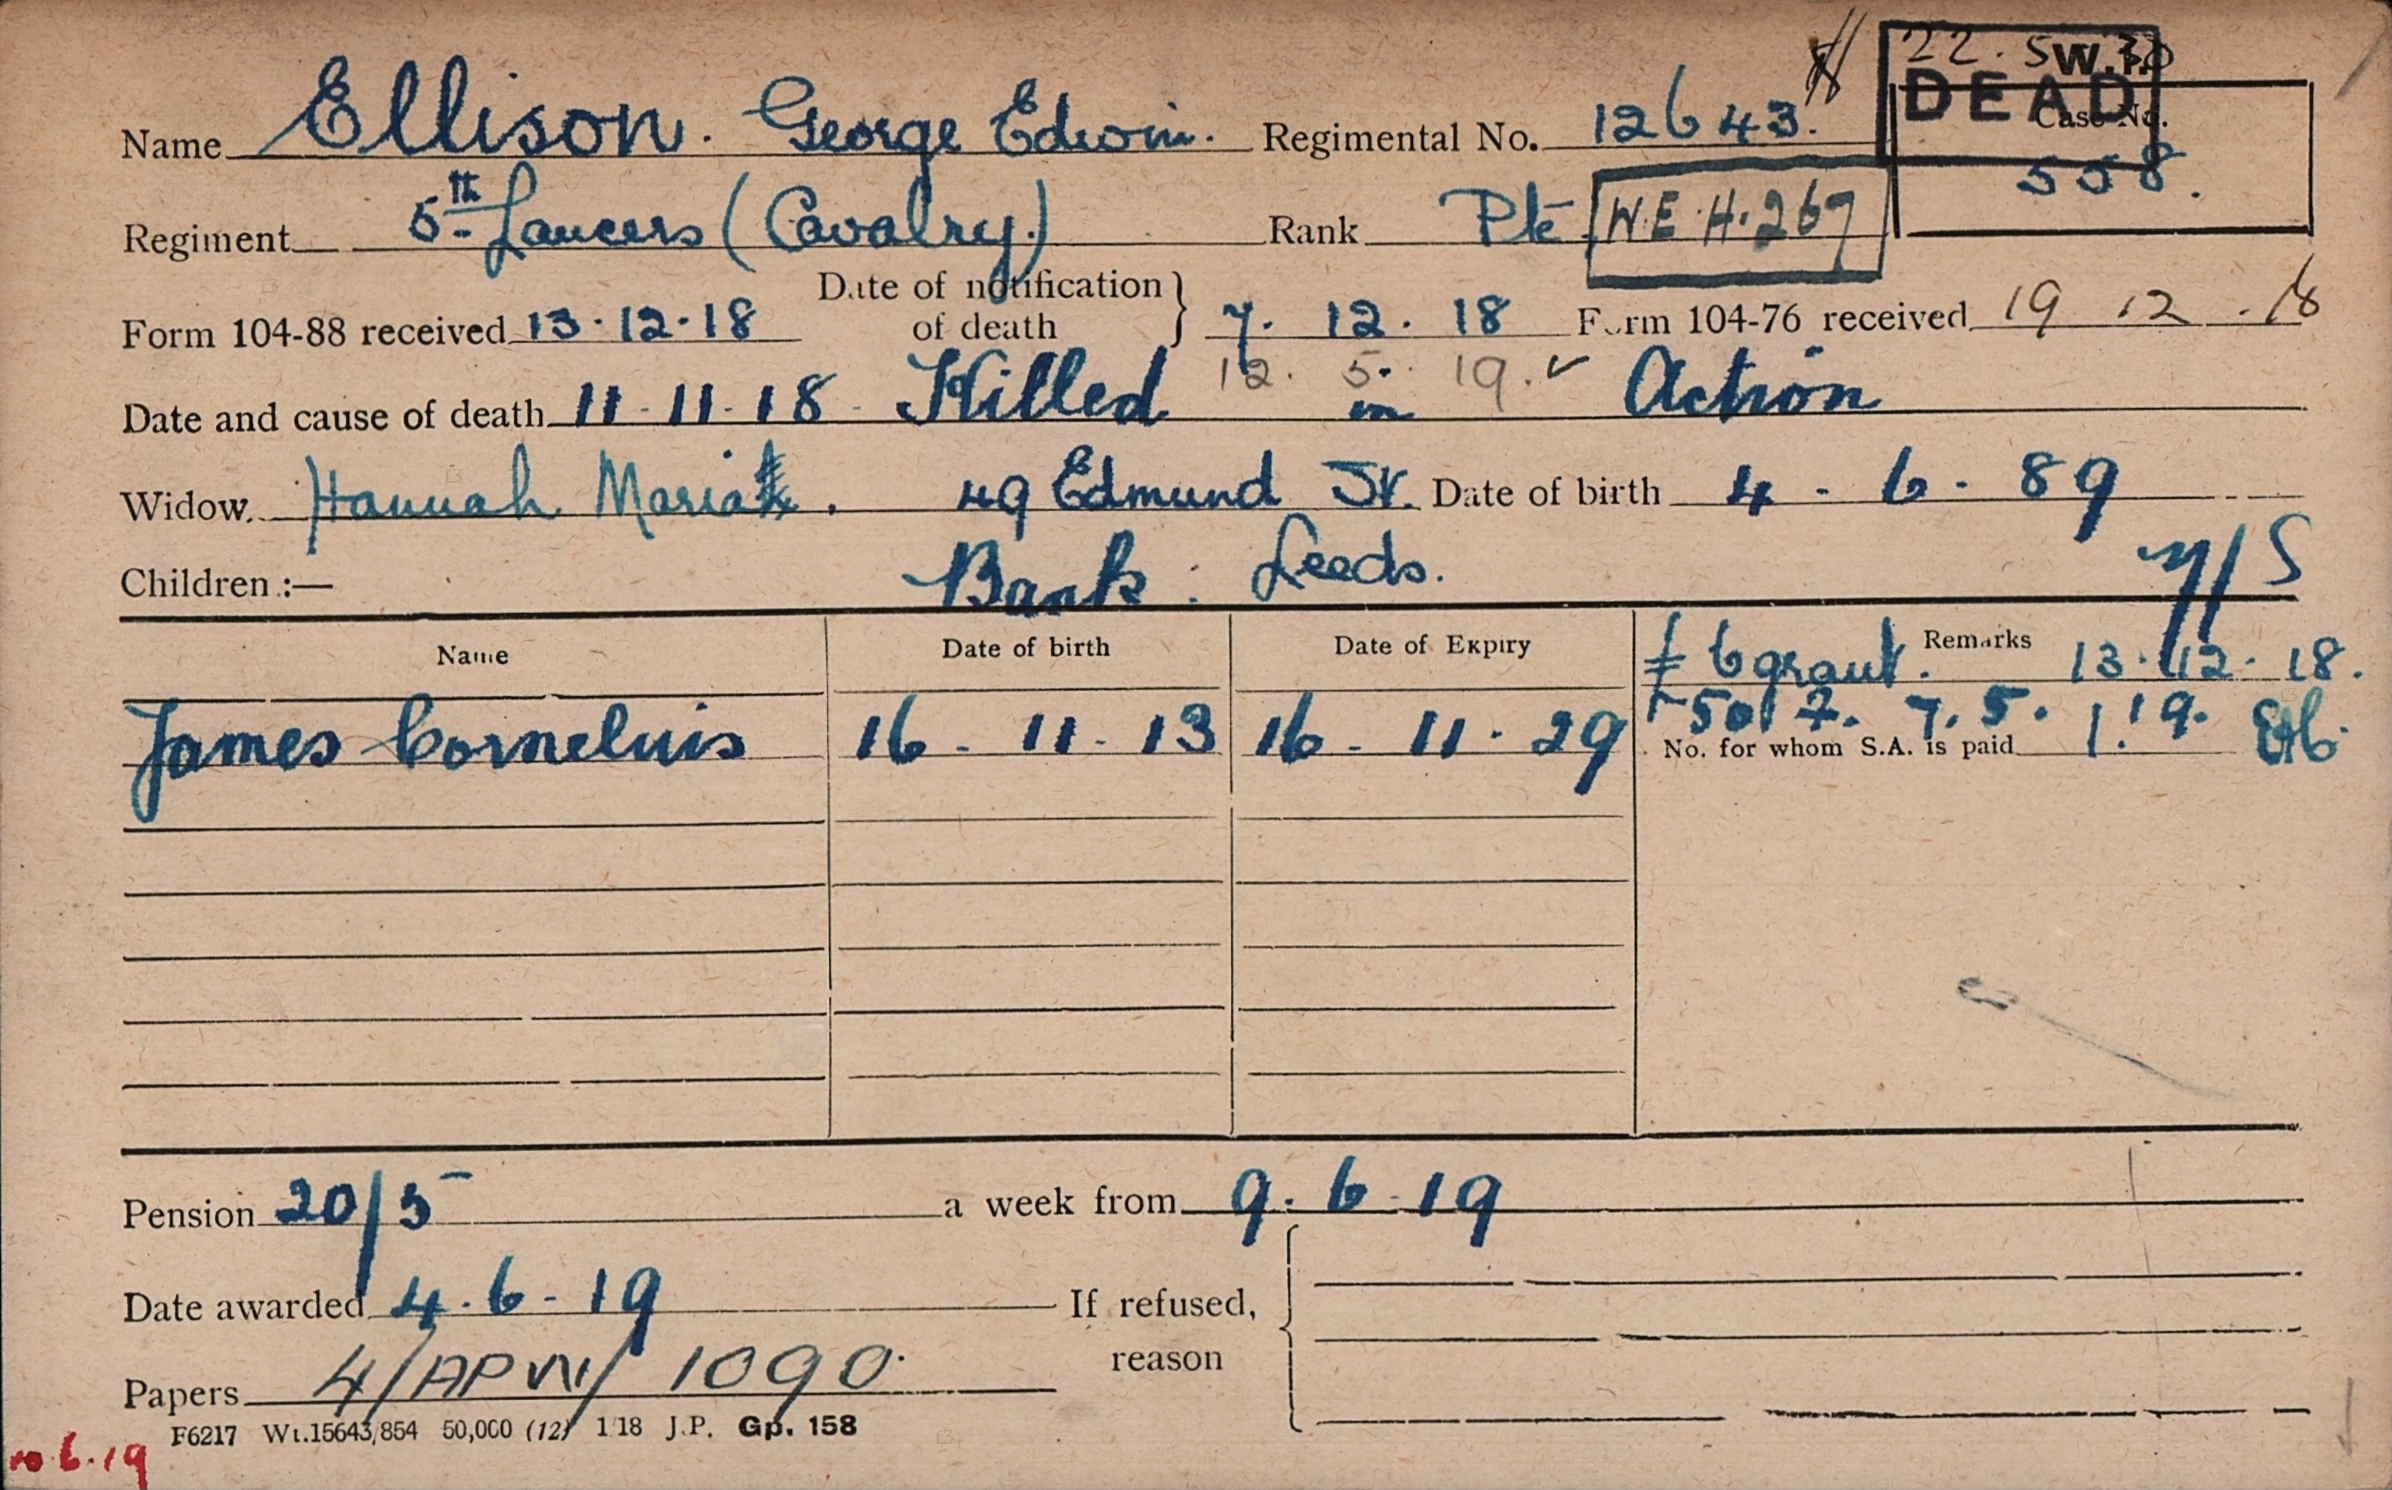 22. 5 W.I.
DEAD
Name Ellison. George Edwin. Regimental No. 12643. Case No.
558.
Regiment 5th Lancers (Cavalry.) Rank Pte W.E.H. 267
Form 104-88 received 13.12.18 Date of notification of death } 7. 12. 18 Form 104-76 received 19 12 .18
12. 5. 19.
Date and cause of death 11-11-18 - Killed in Action
Widow. Hannah Maria. 49 Edmund St. Date of birth 4 - 6 - 89
Children :— Bank. Leeds.
Name Date of birth Date of Expiry Remarks
£6 grant. 13.12.18.
James Cornelius 16 - 11 - 13 16 - 11 - 29
7. 5. 19.
No. for whom S.A. is paid 1.
Pension 20/5 a week from 9. 6. 19
Date awarded 4.6-19 If refused, reason
Papers 4/APW/ 1090.
F6217 Wt.15643/854 50,000 (12) 1/18 J.P. Gp. 158
10.6.19